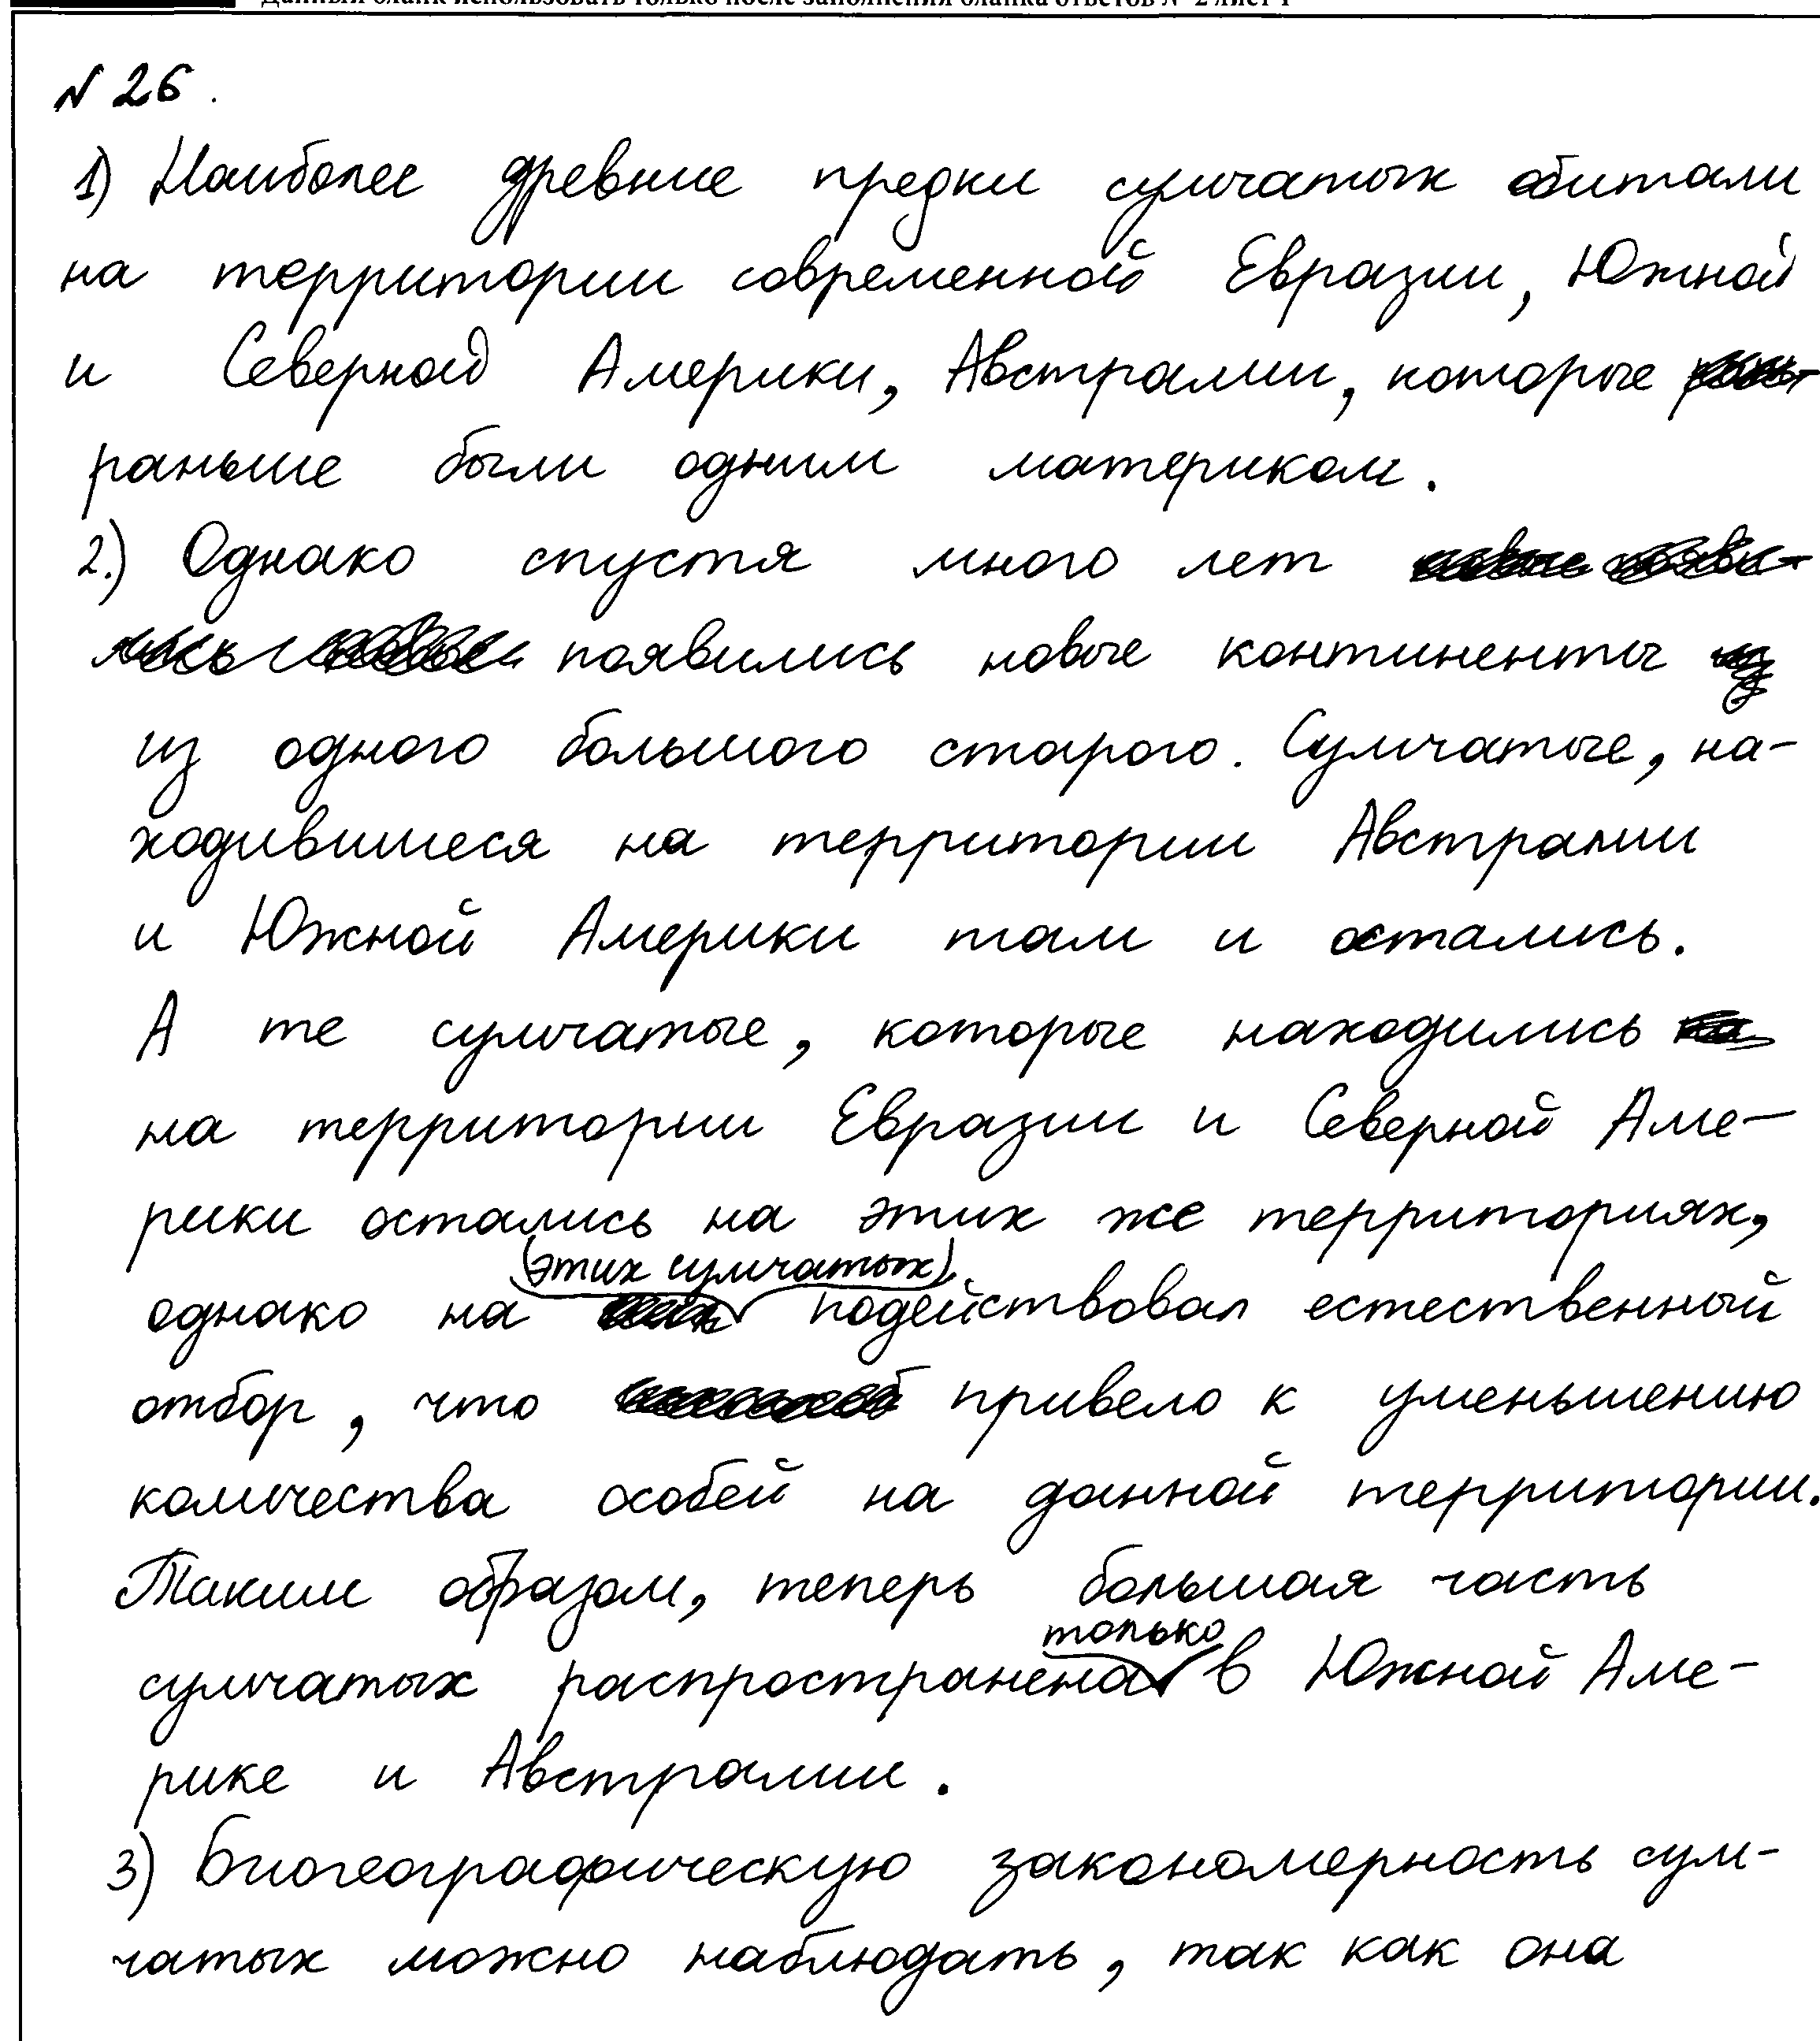 Данный бланк использовать только после заполнения бланка ответов № 2 лист 1
№ 26.
1) Наиболее древние предки сумчатых обитали
на территории современной Евразии, Южной
и Северной Америки, Австралии, которые
раньше были одним материком.
2.) Однако спустя много лет
появились новые континенты
из одного большого старого. Сумчатые, на-
ходившиеся на территории Австралии
и Южной Америки там и остались.
А те сумчатые, которые находились
на территории Евразии и Северной Аме-
рики остались на этих же территориях,
(этих сумчатых)
однако на подействовал естественный
отбор, что привело к уменьшению
количества особей на данной территории.
Таким образом, теперь большая часть
только
сумчатых распространена в Южной Аме-
рике и Австралии.
3) Биогеографическую закономерность сум-
чатых можно наблюдать, так как она